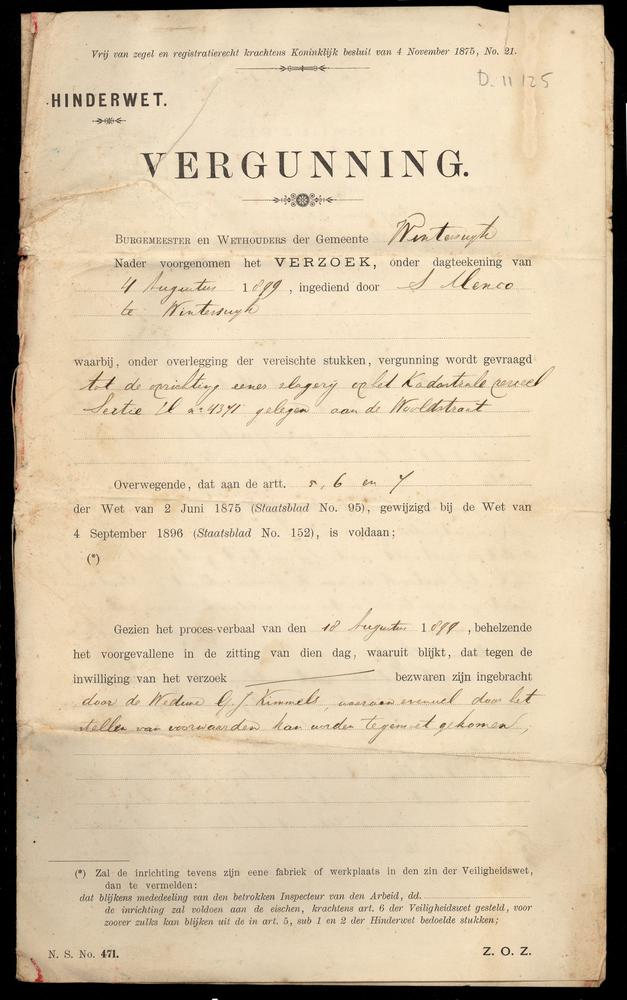 Vrij van zegel en registratierecht krachtens Koninklijk besluit van 4 November 1875, No. 21.
D. 11 125
HINDERWET.
VERGUNNING.
BURGEMEESTER en WETHOUDERS der Gemeente Winterswyk
Nader voorgenomen het VERZOEK, onder dagteekening van
4 Augustus 1899, ingediend door S Menco
te Winterswyk
waarbij, onder overlegging der vereischte stukken, vergunning wordt gevraagd
tot de oprichting eener slagerij op het Kadastrale perceel
Sectie no 4371 gelegen aan de Wooldstraat
Overwegende, dat aan de artt. 5, 6 en 7
der Wet van 2 Juni 1875 (Staatsblad No. 95), gewijzigd bij de Wet van
4 September 1896 (Staatsblad No. 152), is voldaan;
(*)
Gezien het proces-verbaal van den 18 Augustus 1899, behelzende
het voorgevallene in de zitting van dien dag, waaruit blijkt, dat tegen de
inwilliging van het verzoek bezwaren zijn ingebracht
door de Weduwe G. J. Kimmels, waaraan door het
stellen van voorwaarden kan worden tegemoet gekomen,
(*) Zal de inrichting tevens zijn eene fabriek of werkplaats in den zin der Veiligheidswet,
dan te vermelden:
dat blijkens mededeeling van den betrokken Inspecteur van den Arbeid, dd.
de inrichting zal voldoen aan de eischen, krachtens art. 6 der Veiligheidswet gesteld, voor
zoover zulks kan blijken uit de in art. 5, sub 1 en 2 der Hinderwet bedoelde stukken;
N. S. No. 471.
Z. O. Z.